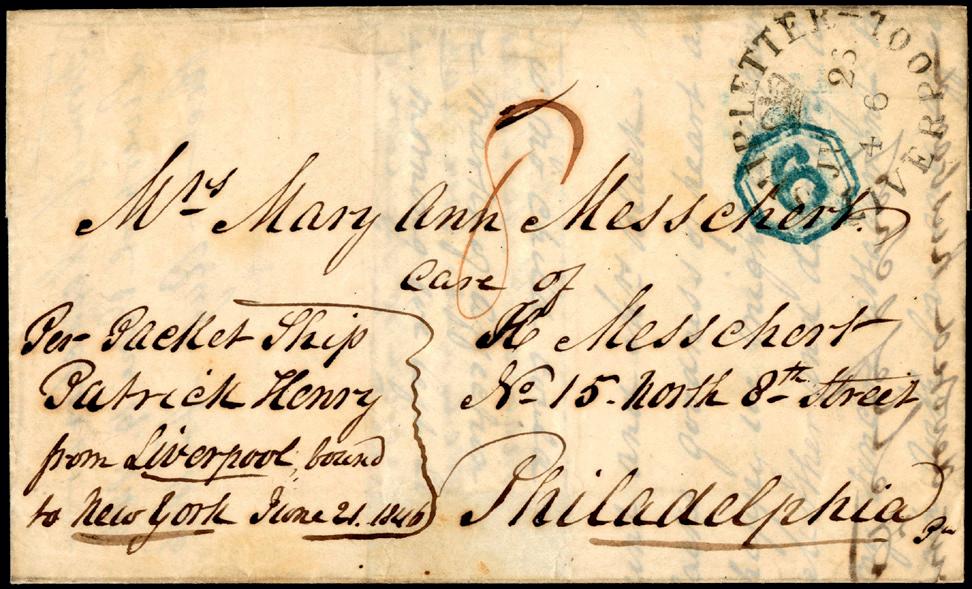 SHIP-LETTER-
LIVERPOOL
46
6
8
Mrs Mary Ann Messchert.
care of
H Messchert
No 15. North 8th Street
Philadelphia
Pa
Per Packet Ship
Patrick Henry
from Liverpool, bound
to New York June 21. 1846